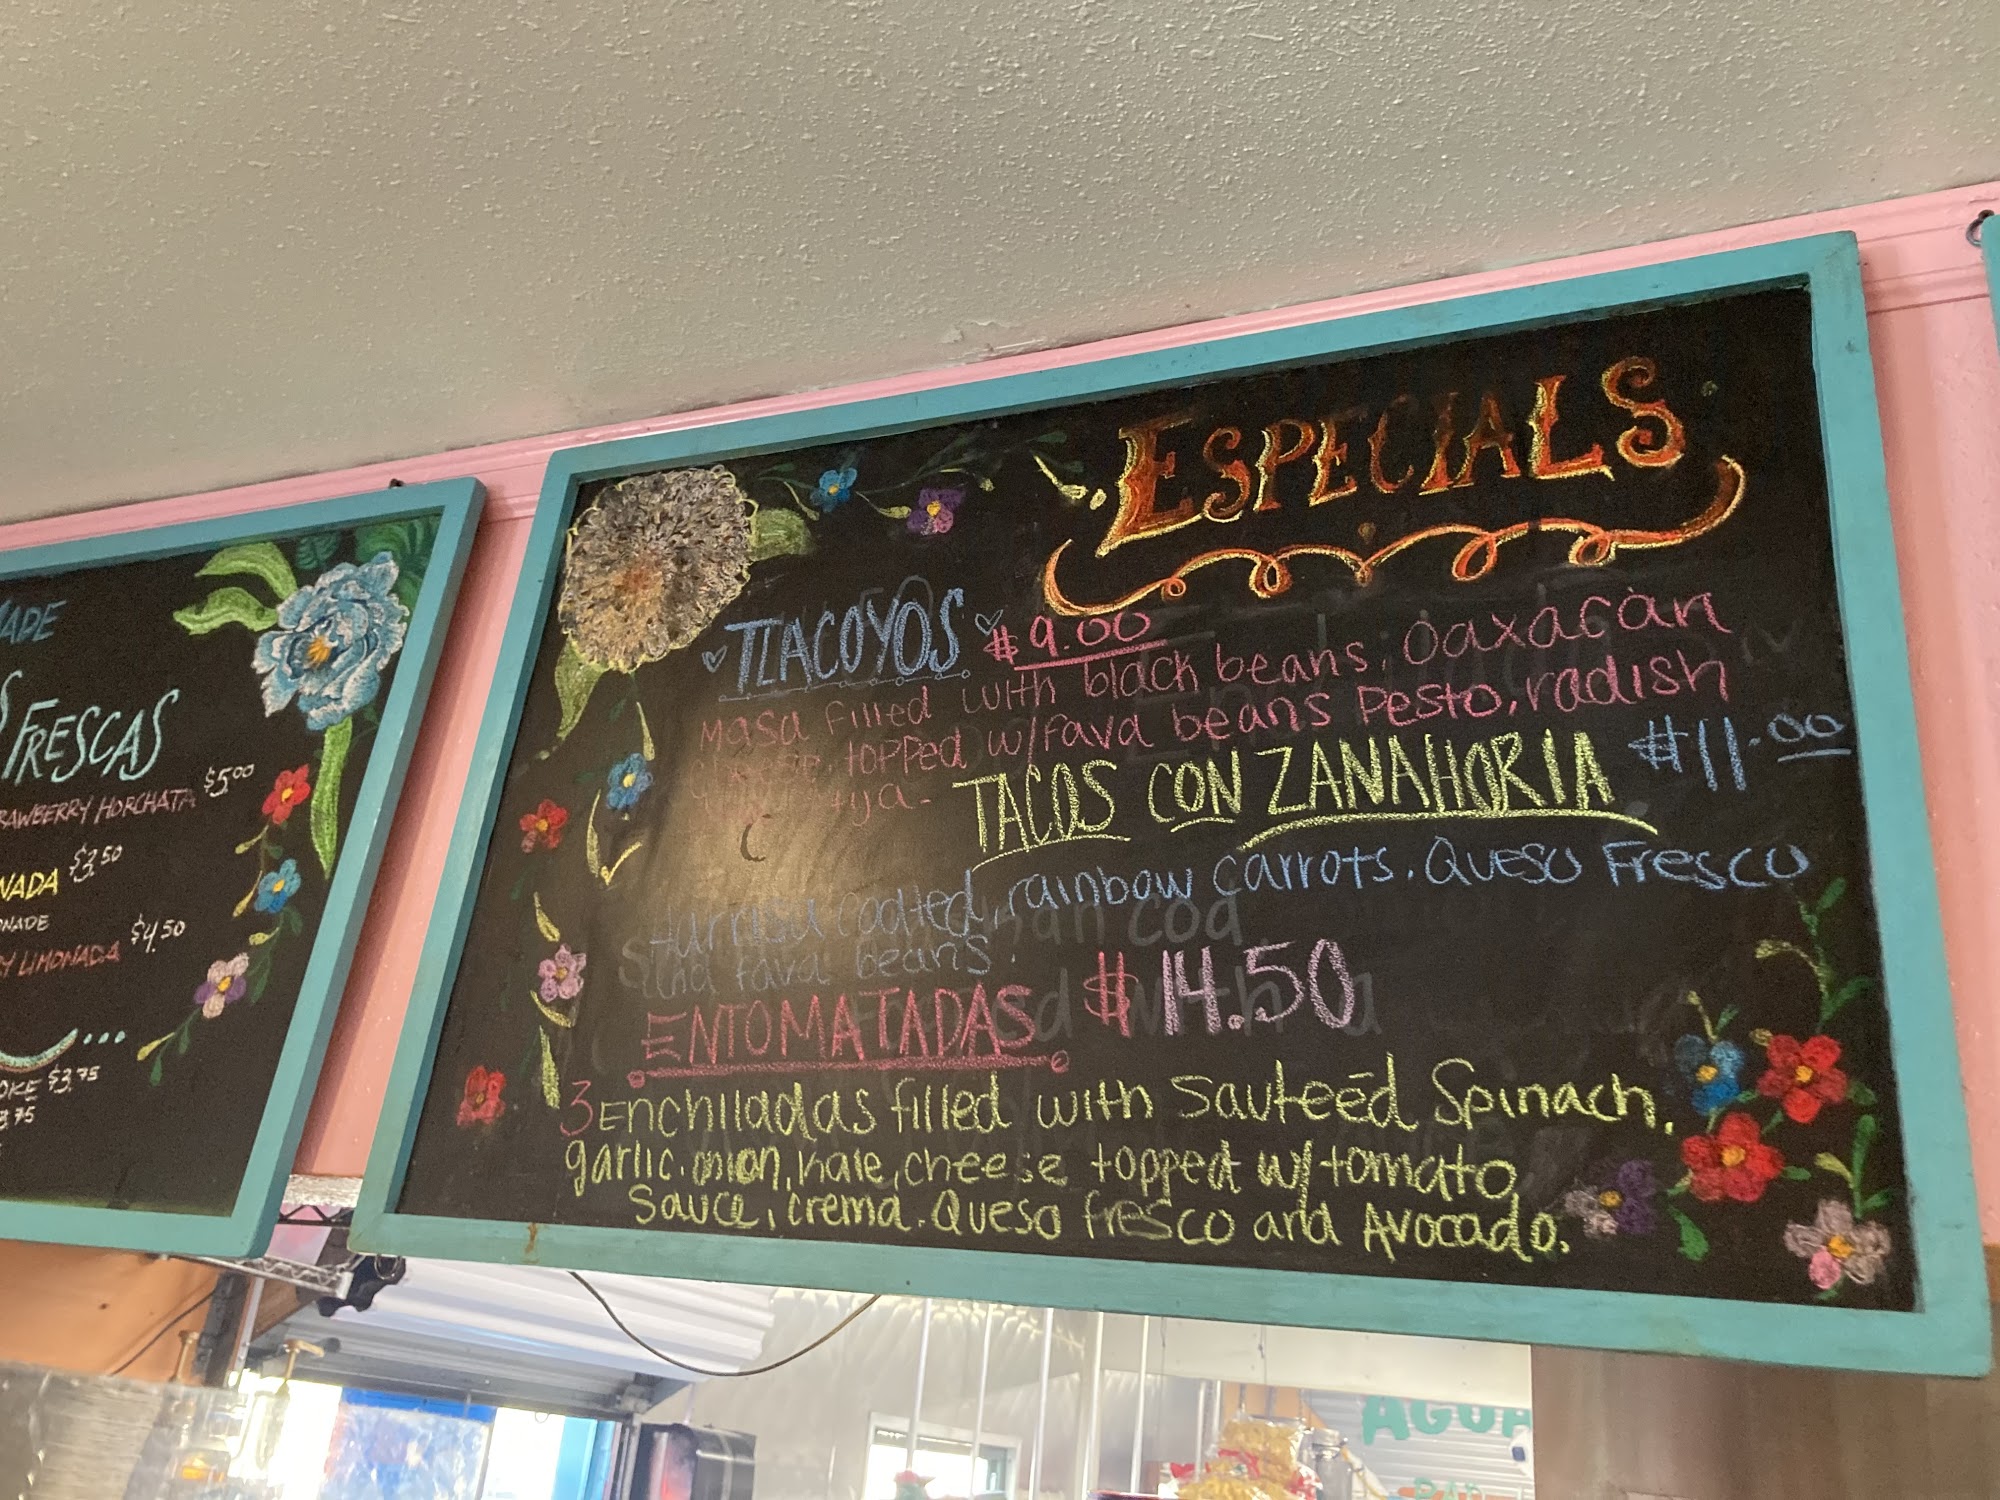 MADE
FRESCAS
STRAWBERRY HORCHATA $5.00
NADA $3.50
ONADE
Y LIMONADA $4.50
OKE $3.75
3.75
ESPECIALS
TLACOYOS $9.00
Masa filled with black beans, Oaxacan
topped w/fava beans Pesto, radish
TACOS CON ZANAHORIA $11.00
coated, rainbow carrots. Queso Fresco
and fava beans.
ENTOMATADAS $14.50
3 Enchiladas filled with Sauteēd Spinach,
garlic, onion, kale, cheese topped w/ tomato
Sauce, crema. Queso fresco and Avocado.
AGUA